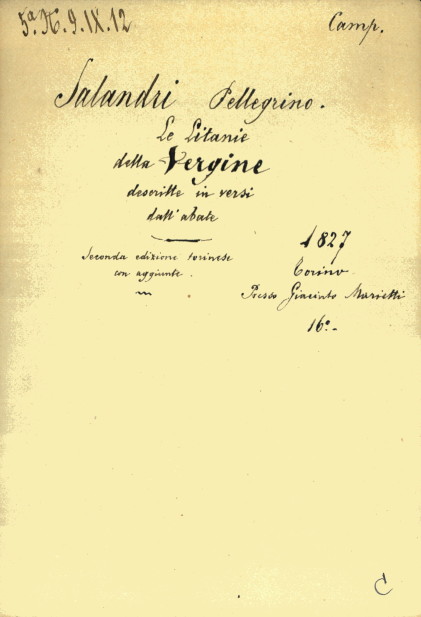 5ª. N. 9. IX. 12
Camp.
Salandri Pellegrino.
Le Litanie
della Vergine
descritte in versi
dall' abate
Seconda edizione torinese
con aggiunte.
1827
Torino
Presso Giacinto Marietti
16º.-
C